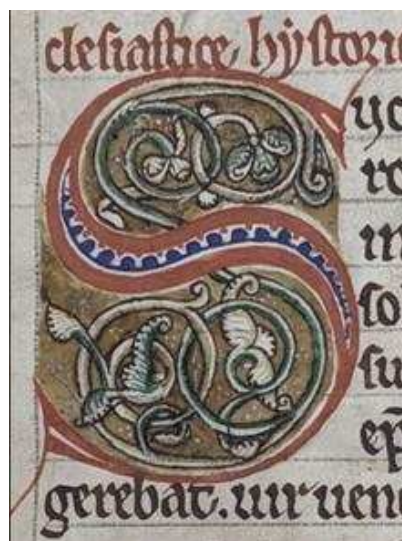 clesiastice hystori
S yc
ro
in
sol
su
ep̄
gerebat. uir uen